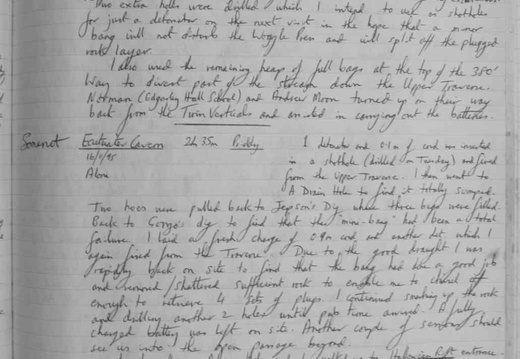 Two extra holes were drilled which I intend to use as shotholes
for just a detonator on the next visit in the hope that a minor
bang will not disturb the Woggle Press and will split off the plugged
rock layer.
I also used the remaining heap of full bags at the top of the 380'
Way to divert part of the stream down the Upper Traverse.
Norman (Edgarley Hall School) and Andrew Moon turned up on their way
back from the Twin Verticals and assisted in carrying out the batteries.
Somerset Eastwater Cavern 2h 35m Priddy 1 detonator and 0.1m of cord was inserted
in a shothole (drilled on Tuesday) and fired
16/ /95 from the Upper Traverse. I then went to
Alone A Drain Hole to find it totally sumped.
Two trees were pulled back to Jepson's Dig where three bags were filled.
Back to Gonzo's dig to find that the "mini-bang" had been a total
failure. I laid a fresh charge of 0.9m cord and another det, which I
again fired from the Traverse. Due to the good draught I was
rapidly back on site to find that the bang had done a good job
and removed/shattered sufficient rock to enable me to chisel off
enough to retrieve 4 sets of plugs. I continued soaking up the rock
and drilling another 2 holes until pub time arrived. A fully
charged battery was left on site. Another couple of sessions should
see us into the open passage beyond.
Rift entrance